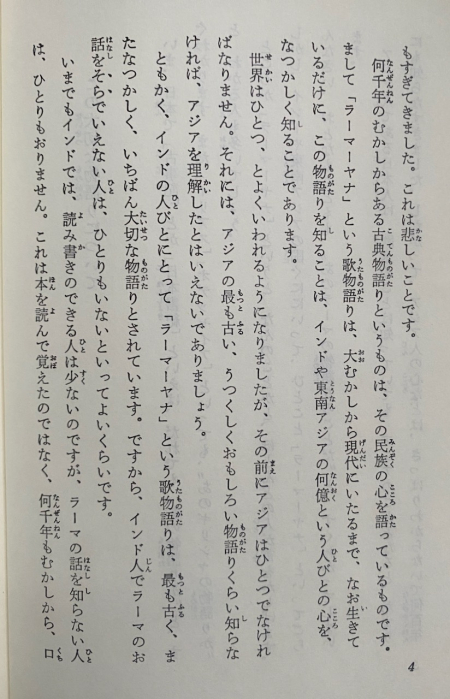 もすぎてきました。これは悲しいことです。
何千年のむかしからある古典物語りというものは、その民族の心を語っているものです。
まして「ラーマーヤナ」という歌物語りは、大むかしから現代にいたるまで、なお生きて
いるだけに、この物語りを知ることは、インドや東南アジアの何億という人びとのこころを、
なつかしく知ることであります。
世界はひとつ、とよくいわれるようになりましたが、その前にアジアはひとつでなけれ
ばなりません。それには、アジアの最も古い、うつくしくおもしろい物語りくらい知らな
ければ、アジアを理解したとはいえないでありましょう。
ともかく、インドの人びとにとって「ラーマーヤナ」という歌物語りは、最も古く、ま
たなつかしく、いちばん大切な物語りとされています。ですから、インド人でラーマのお
話をそらでいえない人は、ひとりもいないといってよいくらいです。
いまでもインドでは、読み書きのできる人は少ないのですが、ラーマの話を知らない人
は、ひとりもおりません。これは本を読んで覚えたのではなく、何千年もむかしから、口
4